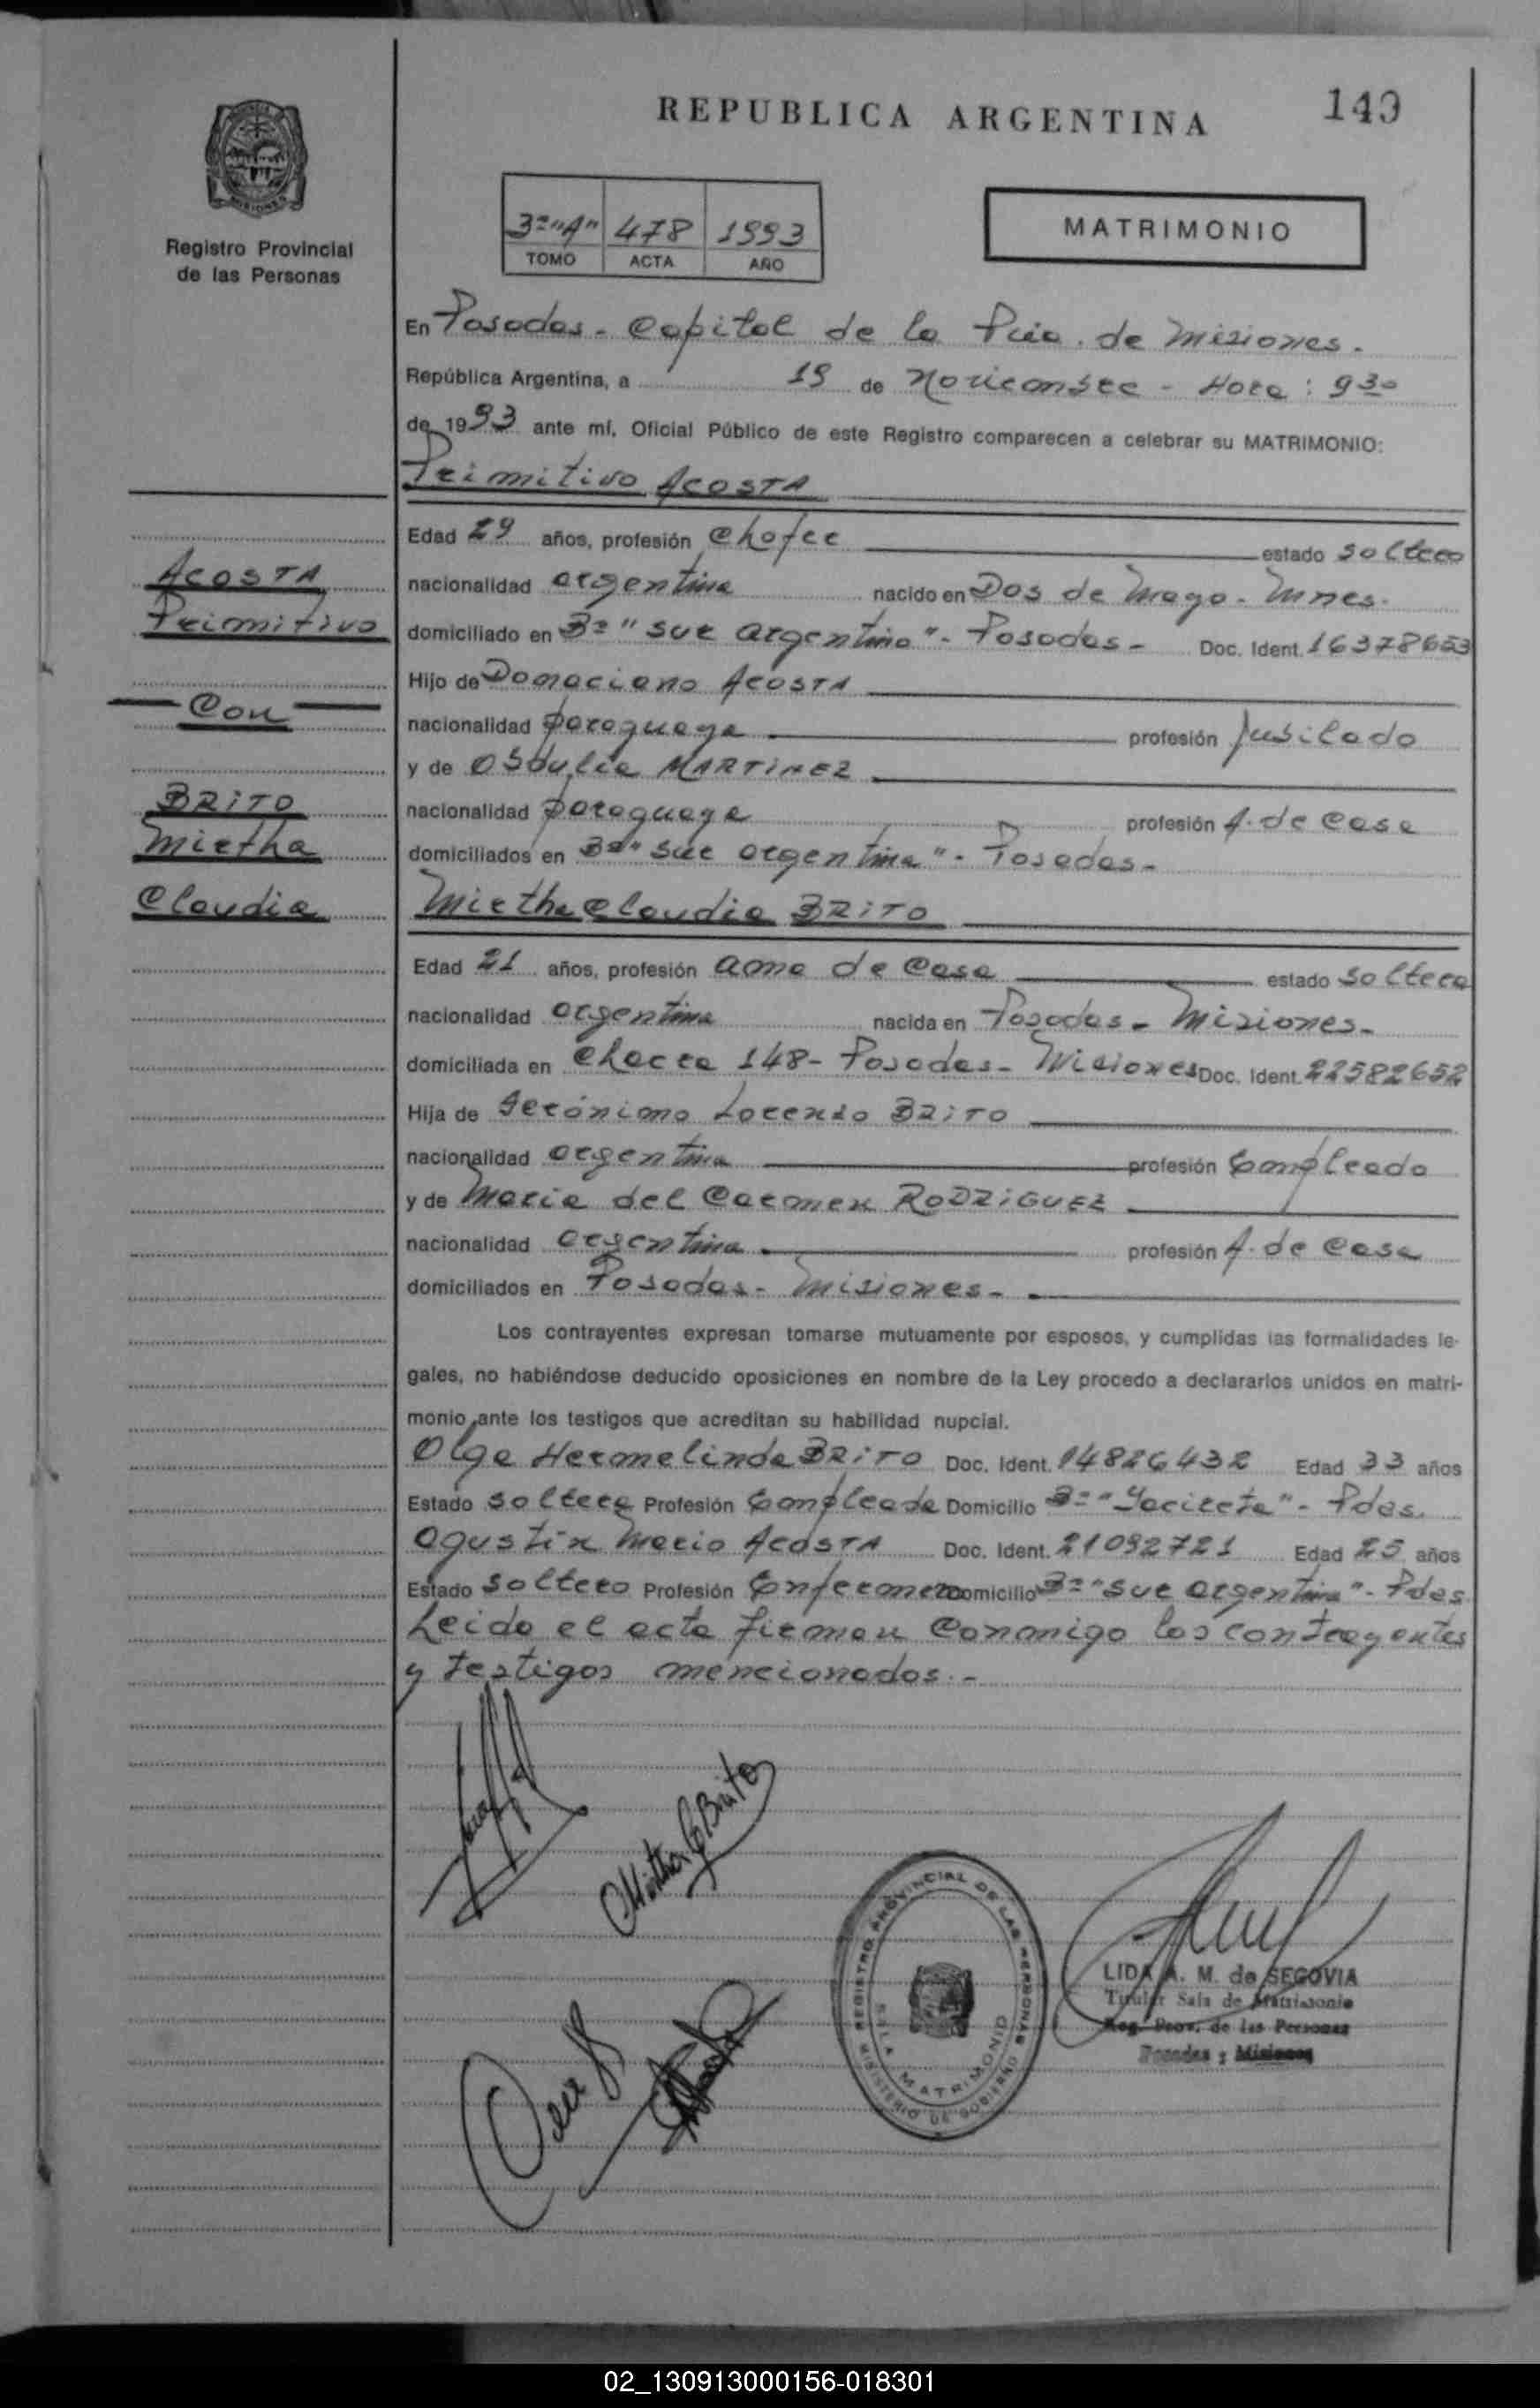 REPUBLICA ARGENTINA
149
MISIONES
Registro Provincial
de las Personas
3º "A" 478 1993
TOMO ACTA AÑO
MATRIMONIO
En Posadas - Capital de la Pcia. de Misiones.
República Argentina, a 19 de Noviembre - Hora: 930
de 1993 ante mí, Oficial Público de este Registro comparecen a celebrar su MATRIMONIO:
Primitivo ACOSTA
Edad 29 años, profesión Chofer estado soltero
ACOSTA
Primitivo
Con
BRITO
Mirtha
Claudia
nacionalidad argentina nacido en Dos de Mayo - Mnes.
domiciliado en Bº "Sur Argentino" - Posadas - Doc. Ident. 16378653
Hijo de Domaciano ACOSTA
nacionalidad paraguaya profesión Jubilado
y de Obdulia MARTINEZ
nacionalidad paraguaya profesión A. de Casa
domiciliados en Bº "Sur argentina" - Posadas -
Mirtha Claudia BRITO
Edad 21 años, profesión ama de Casa estado soltera
nacionalidad argentina nacida en Posadas - Misiones -
domiciliada en Chacra 148 - Posadas - Misiones Doc. Ident. 22582652
Hija de Gerónimo Lorenzo BRITO
nacionalidad argentina profesión Empleado
y de María del Carmen RODRIGUEZ
nacionalidad argentina profesión A. de Casa
domiciliados en Posadas - Misiones -
Los contrayentes expresan tomarse mutuamente por esposos, y cumplidas las formalidades le-
gales, no habiéndose deducido oposiciones en nombre de la Ley procedo a declararlos unidos en matri-
monio ante los testigos que acreditan su habilidad nupcial.
Olga Hermelinda BRITO Doc. Ident. 14826432 Edad 33 años
Estado soltera Profesión Empleada Domicilio Bº "Yacireta" - Pdas.
Agustin Mario ACOSTA Doc. Ident. 21092721 Edad 25 años
Estado soltero Profesión Enfermero Domicilio Bº "Sur argentina" - Pdas
Leida el acta firman Conmigo los contrayentes
y testigos mencionados. -
Mirtha C Brito
REGISTRO PROVINCIAL DE LAS PERSONAS
SALA MATRIMONIO
MINISTERIO DE GOBIERNO
LIDA A. M. de SEGOVIA
Titular Sala de Matrimonio
Reg. Prov. de las Personas
Posadas : Misiones
02_130913000156-018301